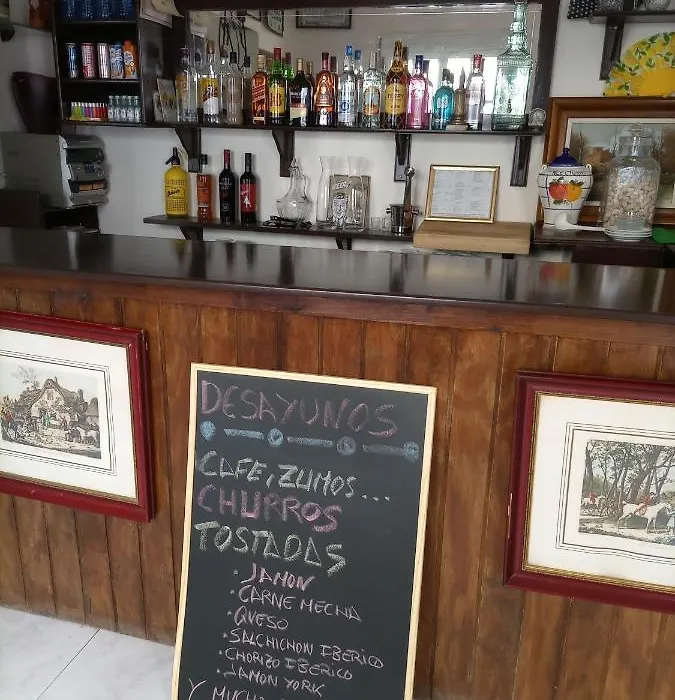 DESAYUNOS
CAFE, ZUMOS...
CHURROS
TOSTADAS
· JAMON
· CARNE MECHA
· QUESO
· SALCHICHON IBERICO
· CHORIZO IBERICO
· JAMON YORK
Y